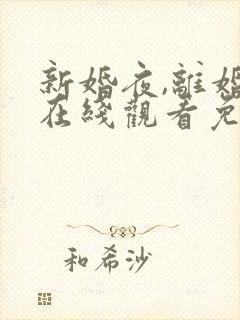 新婚夜,離婚
在綫觀看免
和希沙